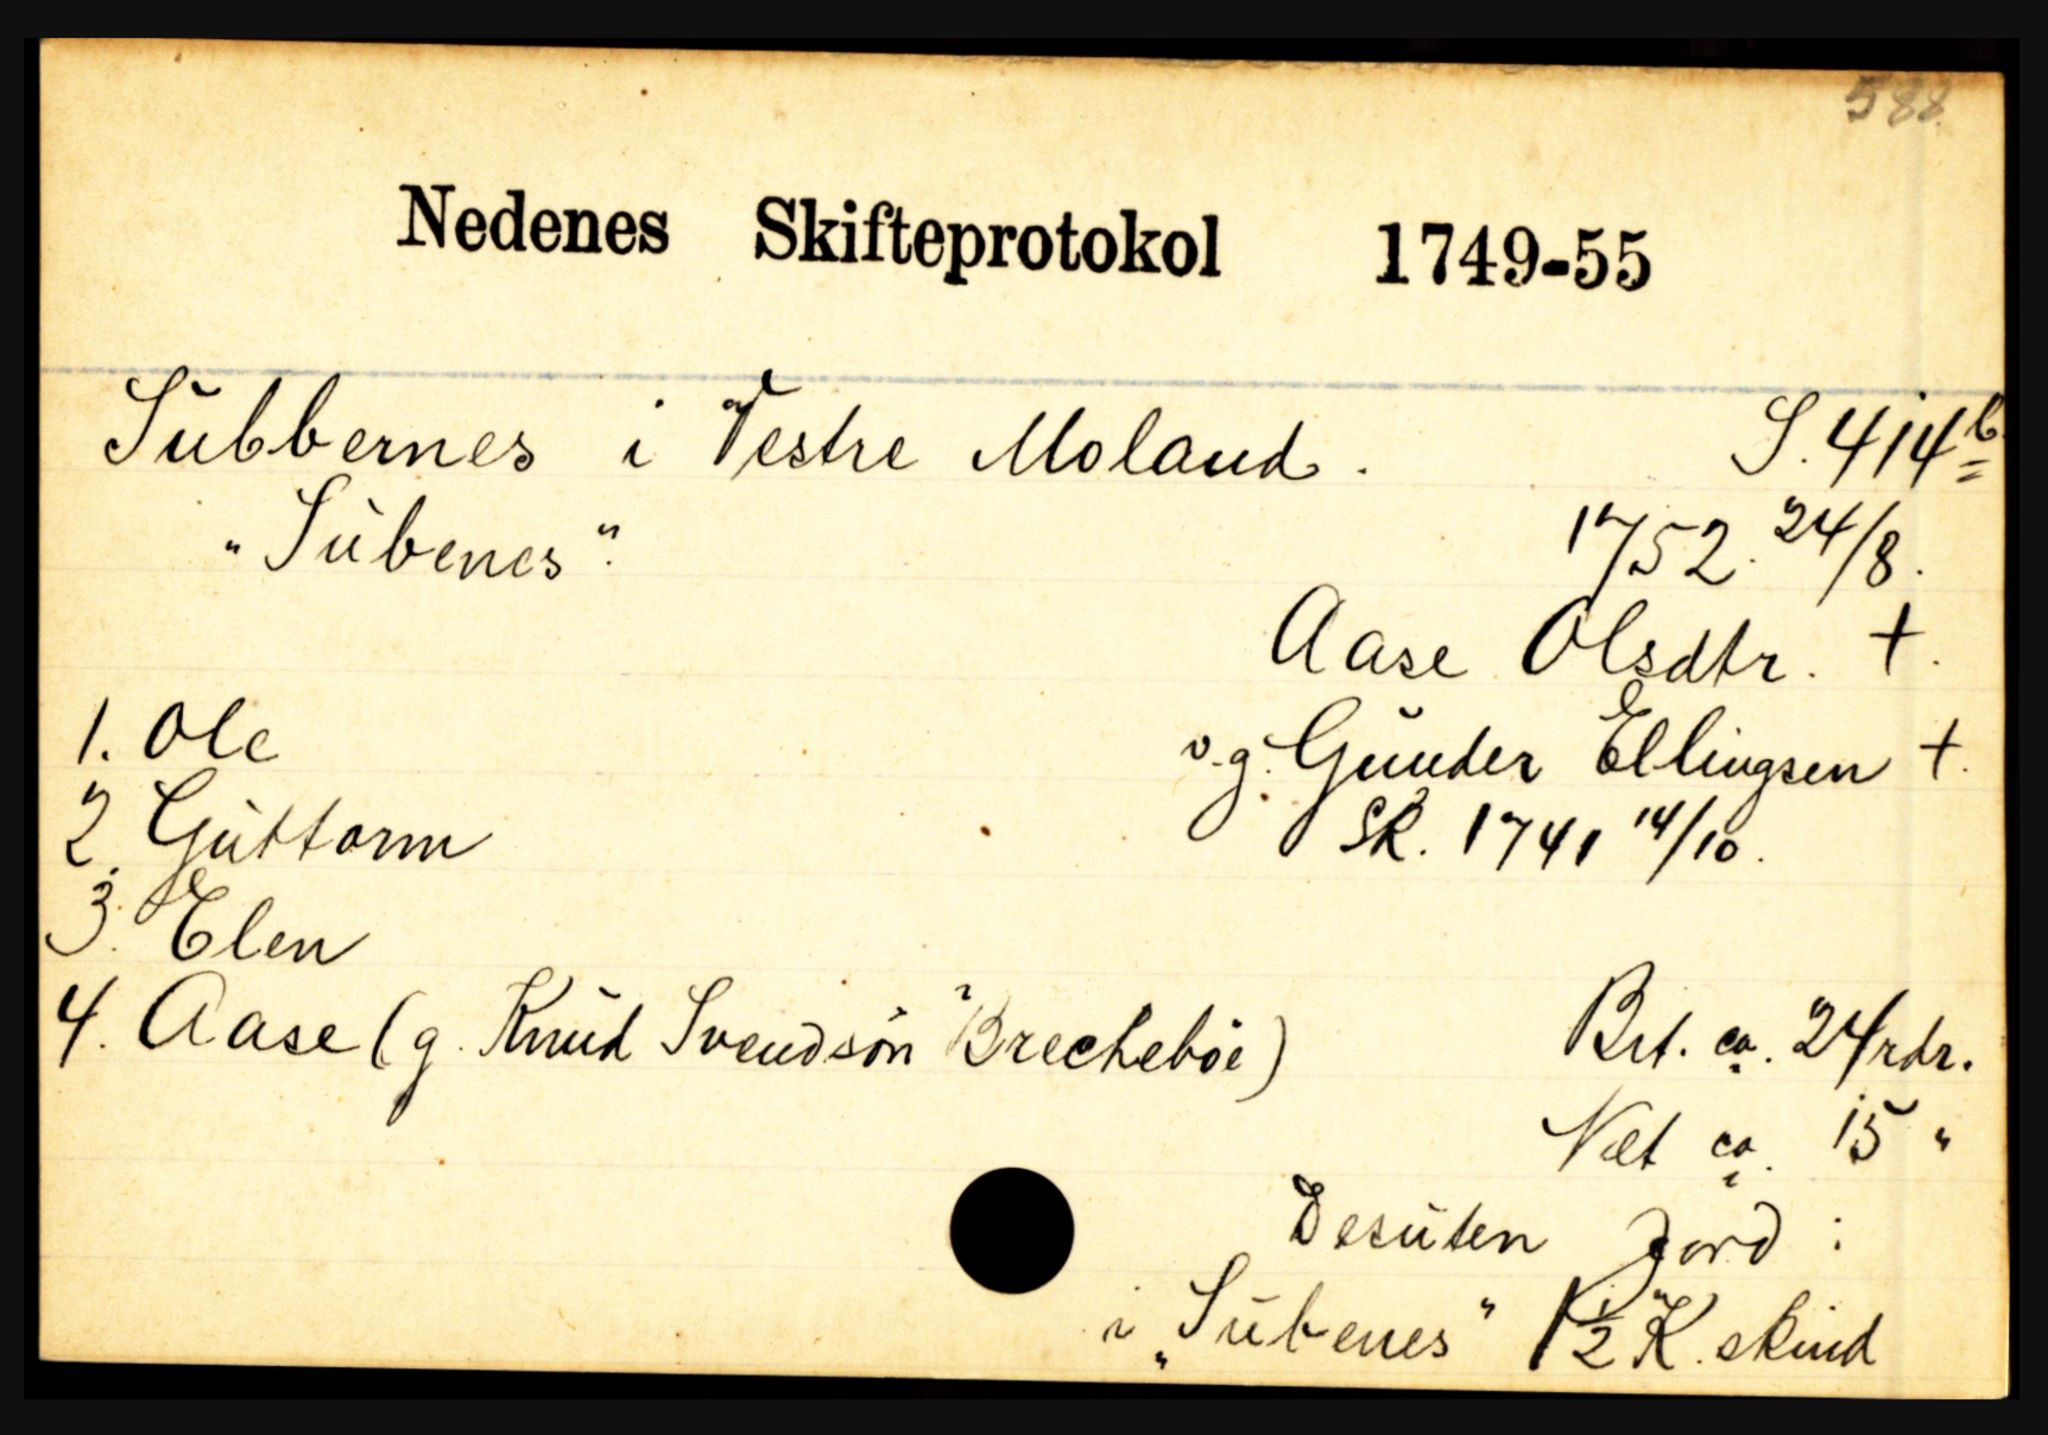 588
Nedenes Skifteprotokol 1749-55
Subbernes i Vestre Moland. S. 414b
"Subenes". 1752. 24/8.
Aase Olsdtr. +.
1. Ole v.g. Gunder Ellingsen +.
2. Guttorm Sk. 1741 14/10.
3. Elen
4. Aase (g. Knud Svendsøn i Brechebøe) Brt. ca. 24 rdr.
Net ca. 15 "
Desuten Jord :
i "Subenes" 1 1/2 K. skind